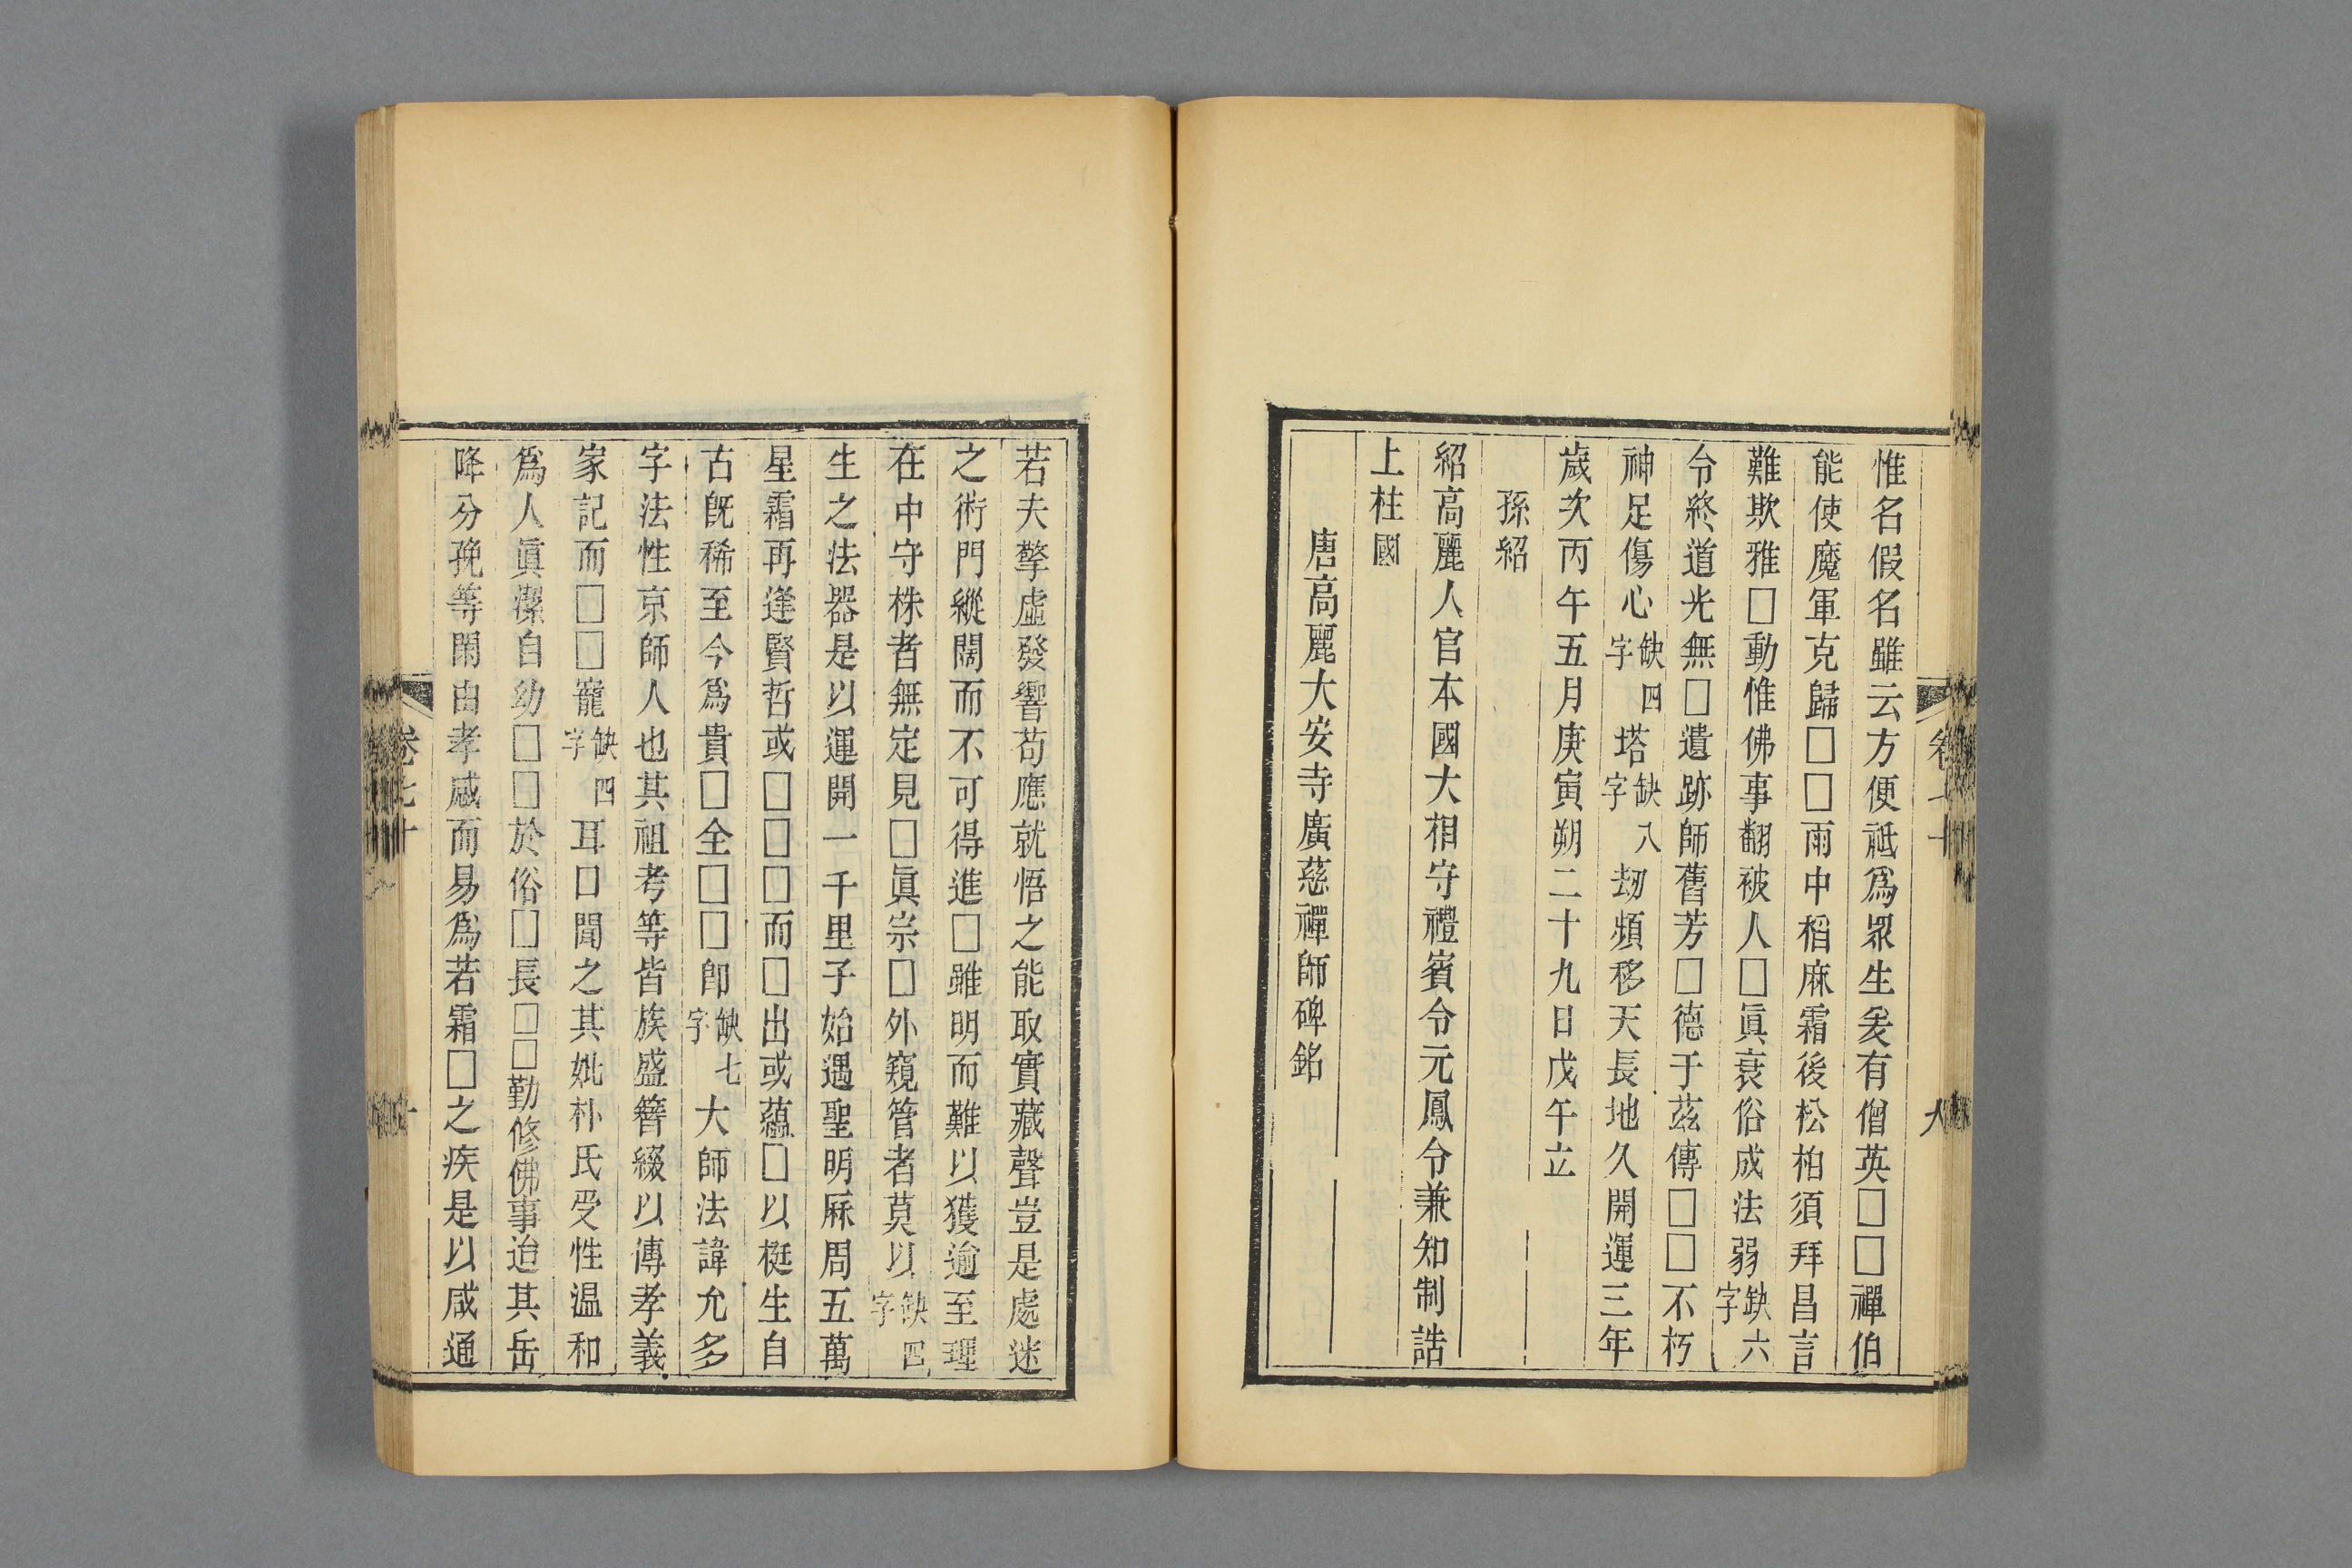 惟名假名雖云方便祗爲眾生爰有僧英□□禪伯
能使魔軍克歸□□雨中稻麻霜後松柏須拜昌言
難欺雅□動惟佛事翻被人□眞衰俗成法弱缺六字
令終道光無□遺跡師舊芳□德于茲傳□□不朽
神足傷心缺四字塔缺八字劫頻移天長地久開運三年
歲次丙午五月庚寅朔二十九日戊午立
孫紹
紹高麗人官本國大相守禮賓令元鳳令兼知制誥
上柱國
唐高麗大安寺廣慈禪師碑銘
若夫擎虛發響苟應就悟之能取實藏聲豈是處迷
之術門縱闊而不可得進□雖明而難以獲逾至理
在中守株者無定見□眞崇□外窺管者莫以缺四字
生之法器是以運開一千里子始遇聖明厤周五萬
星霜再逢賢哲或□□□而□出或蘊□以梃生自
古旣稀至今爲貴□全□□卽缺七字大師法諱允多
字法性京師人也其祖考等皆族盛簪綴以傳孝義
家記而□□寵缺四字耳口聞之其妣朴氏受性温和
爲人眞潔自幼□□於俗□長□□勤修佛事迨其岳
降分㝃等閑由孝感而易爲若霜□之疾是以咸通
卷七十